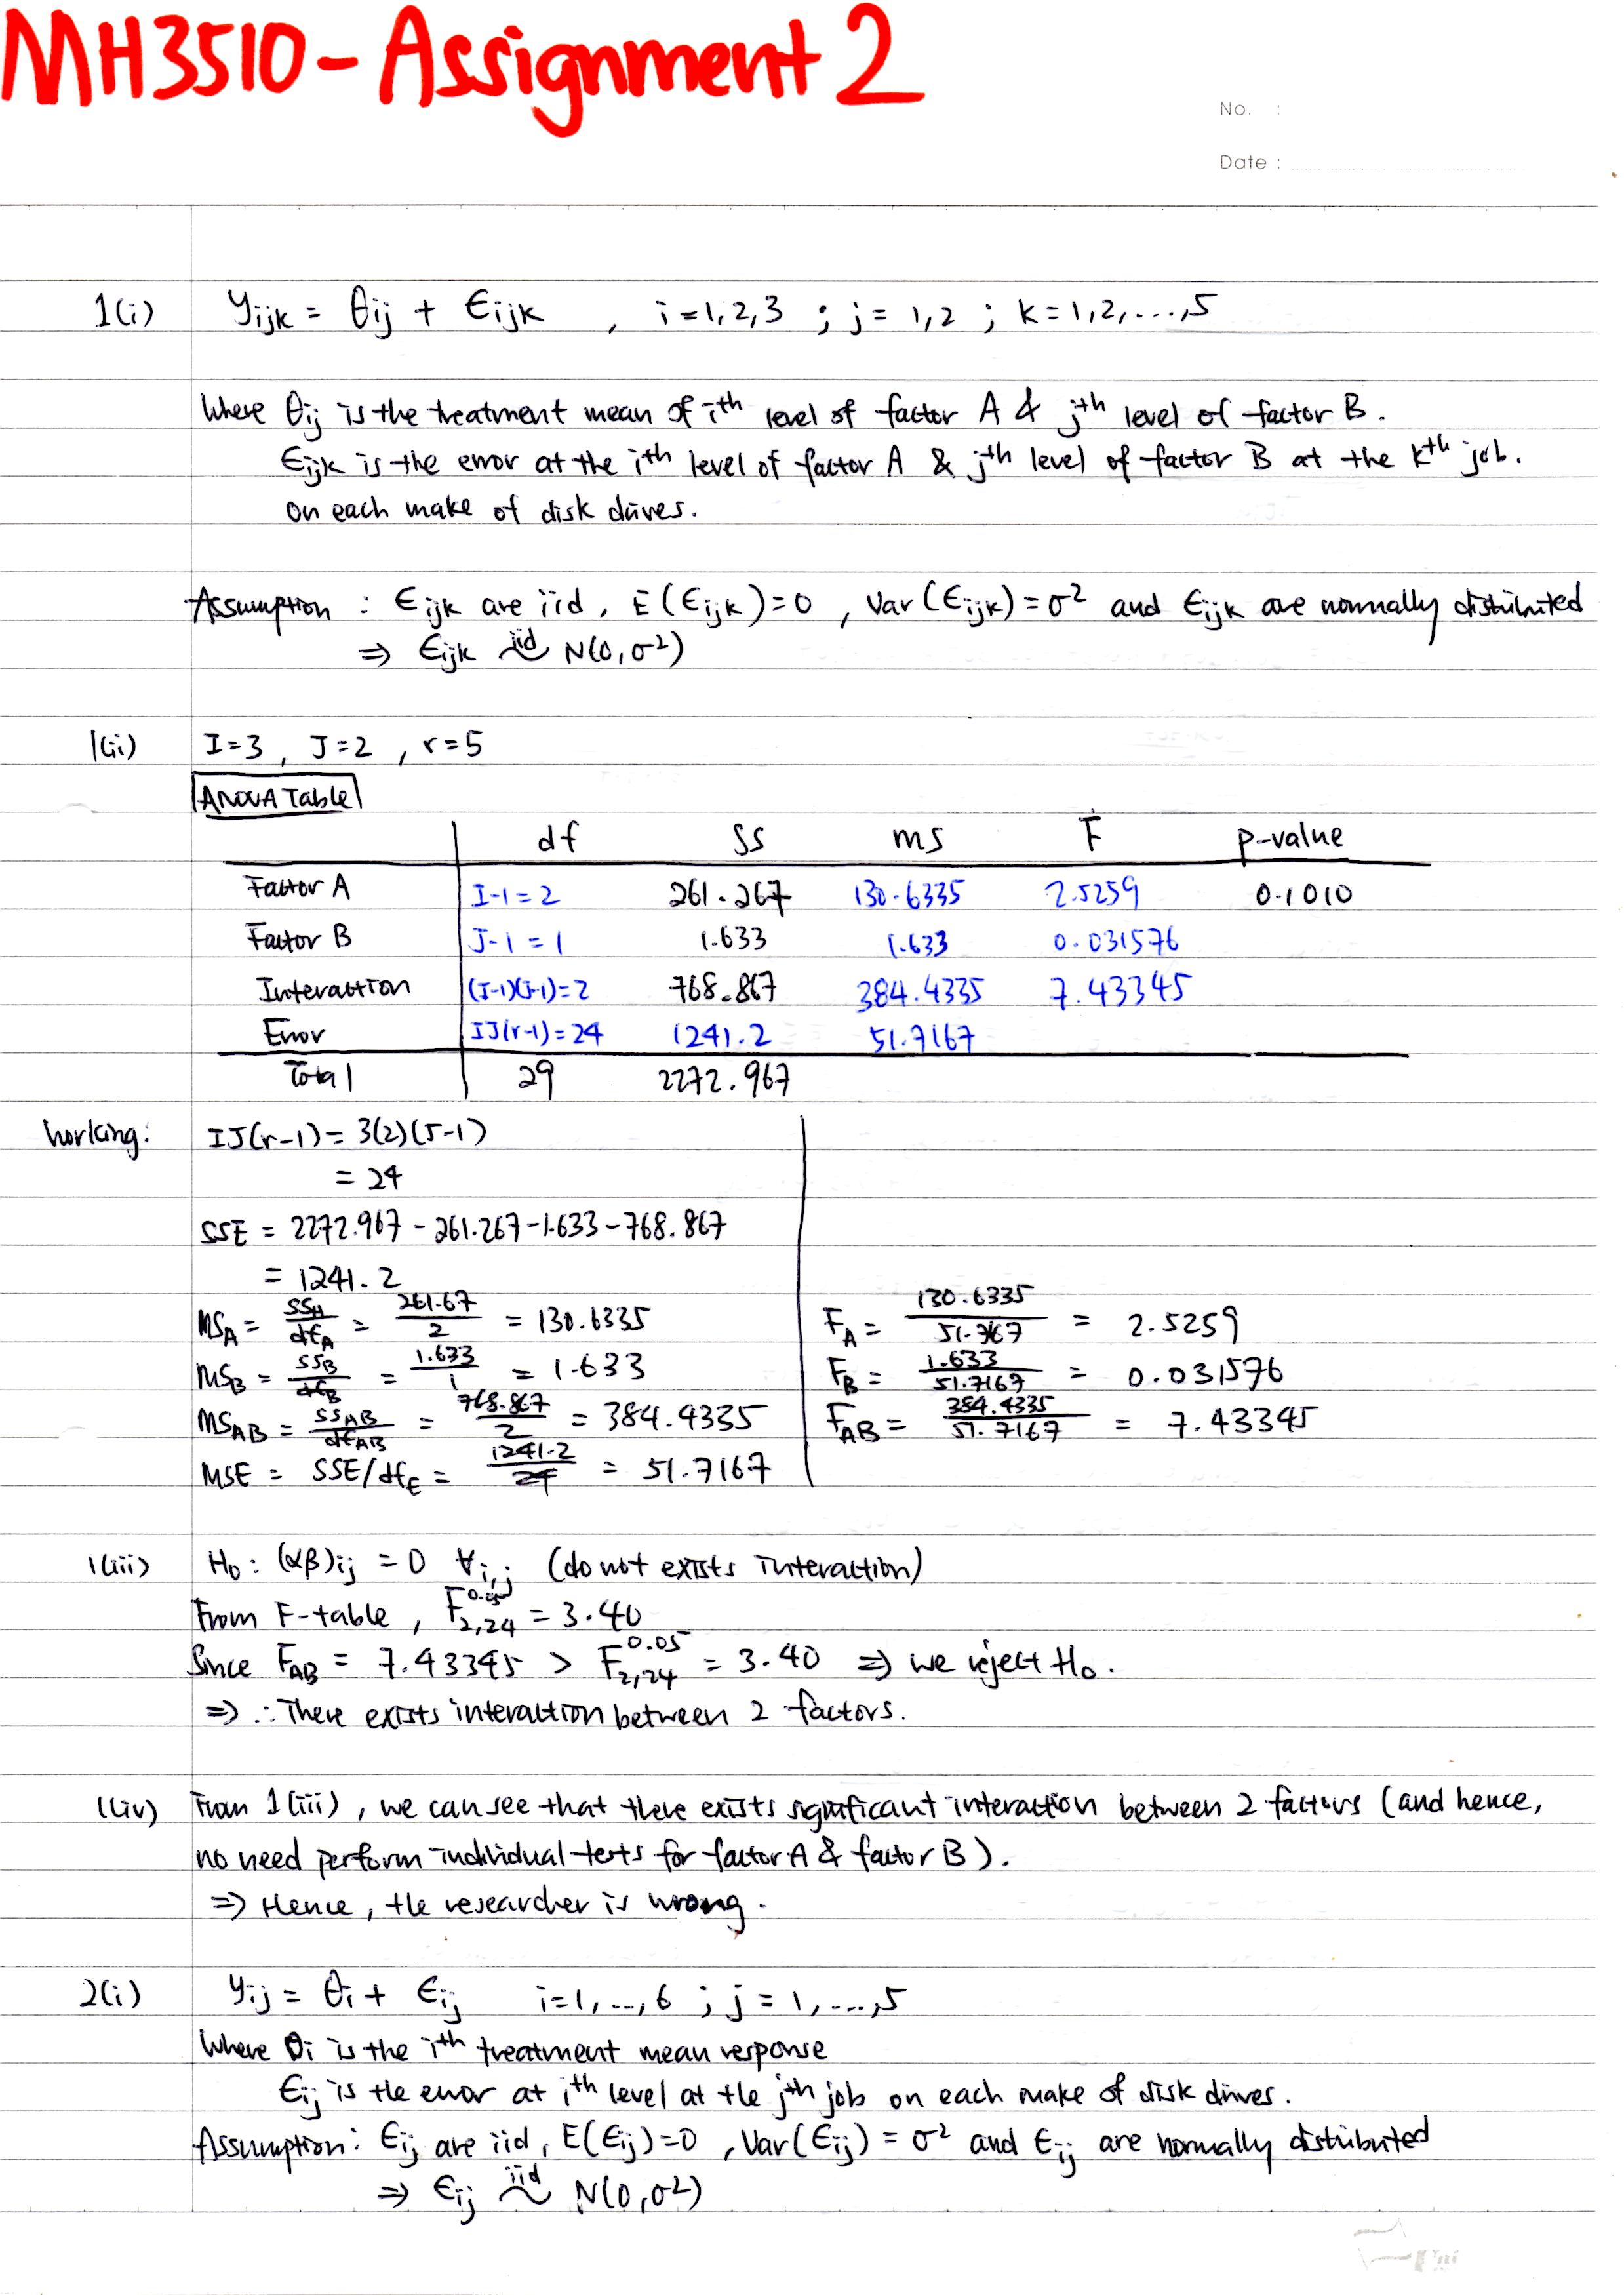 MH3510 - Assignment 2
No. :
Date :
1(i) yijk = θij + Єijk , i=1,2,3 ; j = 1,2 ; k=1,2,...,5
Where θij is the treatment mean of ith level of factor A & jth level of factor B.
Єijk is the error at the ith level of factor A & jth level of factor B at the kth job.
on each make of disk drives.
Assumption : Єijk are iid, E(Єijk)=0, Var(Єijk)=σ² and Єijk are normally distributed
⇒ Єijk iid~ N(0,σ²)
1(ii) I=3, J=2, r=5
ANOVA Table
df SS MS F p-value
Factor A I-1=2 261.267 130.6335 2.5259 0.1010
Factor B J-1=1 1.633 1.633 0.031576
Interaction (I-1)(J-1)=2 768.867 384.4335 7.43345
Error IJ(r-1)=24 1241.2 51.7167
Total 29 2272.967
Working: IJ(r-1) = 3(2)(5-1)
= 24
SSE = 2272.967 - 261.267 - 1.633 - 768.867
= 1241.2
MSA = SSA/dfA = 261.67/2 = 130.6335 FA = 130.6335/51.767 = 2.5259
MSB = SSB/dfB = 1.633/1 = 1.633 FB = 1.633/51.7167 = 0.031576
MSAB = SSAB/dfAB = 768.867/2 = 384.4335 FAB = 384.4335/51.7167 = 7.43345
MSE = SSE/dfE = 1241.2/24 = 51.7167
1(iii) H0 : (αβ)ij = 0 ∀i,j (do not exists interaction)
From F-table, F2,24^0.05 = 3.40
Since FAB = 7.43345 > F2,24^0.05 = 3.40 ⇒ we reject H0.
⇒ ∴ There exists interaction between 2 factors.
1(iv) From 1(iii), we can see that there exists significant interaction between 2 factors (and hence,
no need perform individual tests for factor A & factor B).
⇒ Hence, the researcher is wrong.
2(i) yij = θi + Єij i=1,...,6 ; j = 1,...,5
Where θi is the ith treatment mean response
Єij is the error at ith level at the jth job on each make of disk drives.
Assumption : Єij are iid, E(Єij)=0, Var(Єij) = σ² and Єij are normally distributed
⇒ Єij iid~ N(0,σ²)